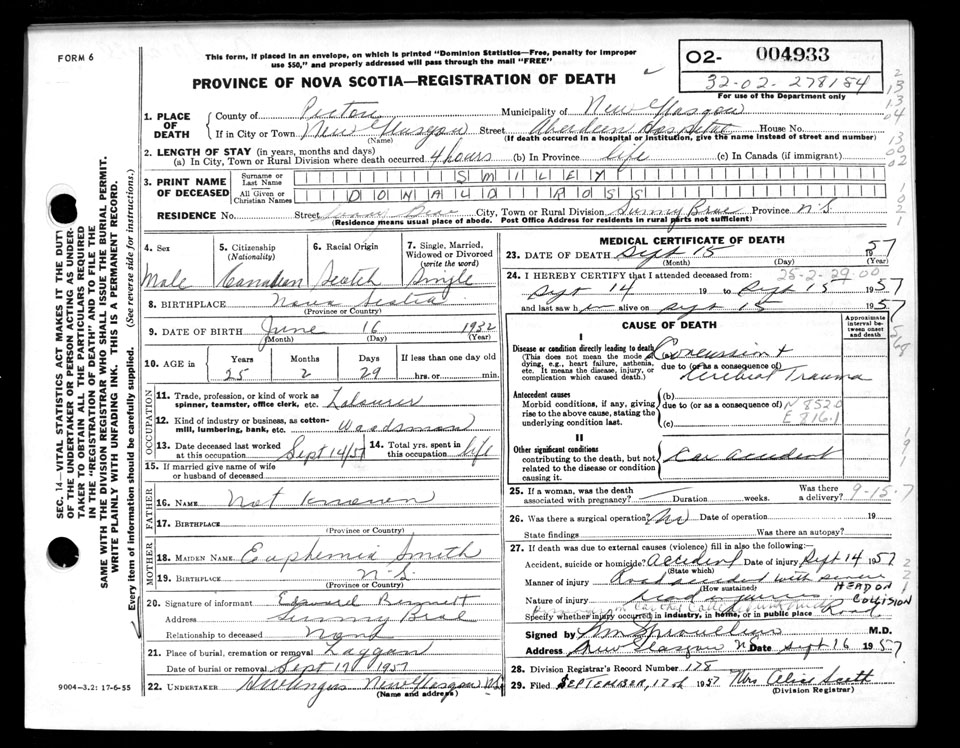 FORM 6
This form, if placed in an envelope, on which is printed "Dominion Statistics—Free, penalty for improper
use $50," and properly addressed will pass through the mail "FREE"
O2- 004933
32-02-278154
For use of the Department only
PROVINCE OF NOVA SCOTIA—REGISTRATION OF DEATH
1. PLACE OF DEATH
County of Pictou Municipality of New Glasgow
If in City or Town New Glasgow Street Aberdeen Hospital House No.
(Name) (If death occurred in a hospital or institution, give the name instead of street and number)
2. LENGTH OF STAY (in years, months and days)
(a) In City, Town or Rural Division where death occurred 4 hours (b) In Province life (c) In Canada (if immigrant)
3. PRINT NAME OF DECEASED
Surname or Last Name SMILEY
All Given or Christian Names DONALD ROSS
RESIDENCE No. Street City, Town or Rural Division Sunny Brae Province N.S.
(Residence means usual place of abode. Post Office Address for residents in rural parts not sufficient)
4. Sex Male
5. Citizenship (Nationality) Canadian
6. Racial Origin Scotch
7. Single, Married, Widowed or Divorced (write the word) Single
8. BIRTHPLACE Nova Scotia
(Province or Country)
9. DATE OF BIRTH June 16 1932
(Month) (Day) (Year)
10. AGE in Years 25 Months 2 Days 29 If less than one day hrs. or min.
OCCUPATION
11. Trade, profession, or kind of work as spinner, teamster, office clerk, etc. Labourer
12. Kind of industry or business, as cotton-mill, lumbering, bank, etc. Woodsman
13. Date deceased last worked at this occupation Sept 14/57
14. Total yrs. spent in this occupation life
15. If married give name of wife or husband of deceased
FATHER
16. NAME Not known
17. BIRTHPLACE
(Province or Country)
MOTHER
18. MAIDEN NAME Euphemia Smith
19. BIRTHPLACE N.S.
(Province or Country)
20. Signature of informant Edward Bennett
Address Sunny Brae
Relationship to deceased None
21. Place of burial, cremation or removal Laggan
Date of burial or removal Sept 17 1957
22. UNDERTAKER New Glasgow N.S.
(Name and address)
9004—3.2: 17-6-55
MEDICAL CERTIFICATE OF DEATH
23. DATE OF DEATH Sept 15 1957
(Month) (Day) (Year)
24. I HEREBY CERTIFY that I attended deceased from
25-2-29-00
Sept 14 19 to Sept 15 1957
and last saw h im alive on Sept 15 1957
CAUSE OF DEATH
Approximate interval between onset and death
I
Disease or condition directly leading to death
(This does not mean the mode of dying, e.g., heart failure, asthenia, etc. It means the disease, injury, or complication which caused death.)
Concussion &
due to (or as a consequence of)
Cerebral Trauma
Antecedent causes
Morbid conditions, if any, giving rise to the above cause, stating the underlying condition last.
(b)
due to (or as a consequence of) N 852.0
E 816.1
(c)
II
Other significant conditions
contributing to the death, but not related to the disease or condition causing it.
Car accident
25. If a woman, was the death associated with pregnancy? Duration weeks. Was there a delivery?
9-15-7
26. Was there a surgical operation? No Date of operation 19
State findings Was there an autopsy?
27. If death was due to external causes (violence) fill in also the following:—
Accident, suicide or homicide? Accident Date of injury Sept 14 1957
(State which)
Manner of injury Road accident with severe
(How sustained)
Nature of injury head injuries HEAD ON COLLISION
Specify whether injury occurred in industry, in home, or in public place Road
Signed by M.D.
Address New Glasgow N Date Sept 16 1957
28. Division Registrar's Record Number 178
29. Filed SEPTEMBER, 17th 1957 Mrs Alice Scott
(Division Registrar)
SEC. 14—VITAL STATISTICS ACT MAKES IT THE DUTY
OF THE UNDERTAKER OR PERSON ACTING AS UNDER-
TAKER TO OBTAIN ALL THE PARTICULARS REQUIRED
IN THE "REGISTRATION OF DEATH" AND TO FILE THE
SAME WITH THE DIVISION REGISTRAR WHO SHALL ISSUE THE BURIAL PERMIT.
WRITE PLAINLY WITH UNFADING INK. THIS IS A PERMANENT RECORD.
Every item of information should be carefully supplied. (See reverse side for instructions.)